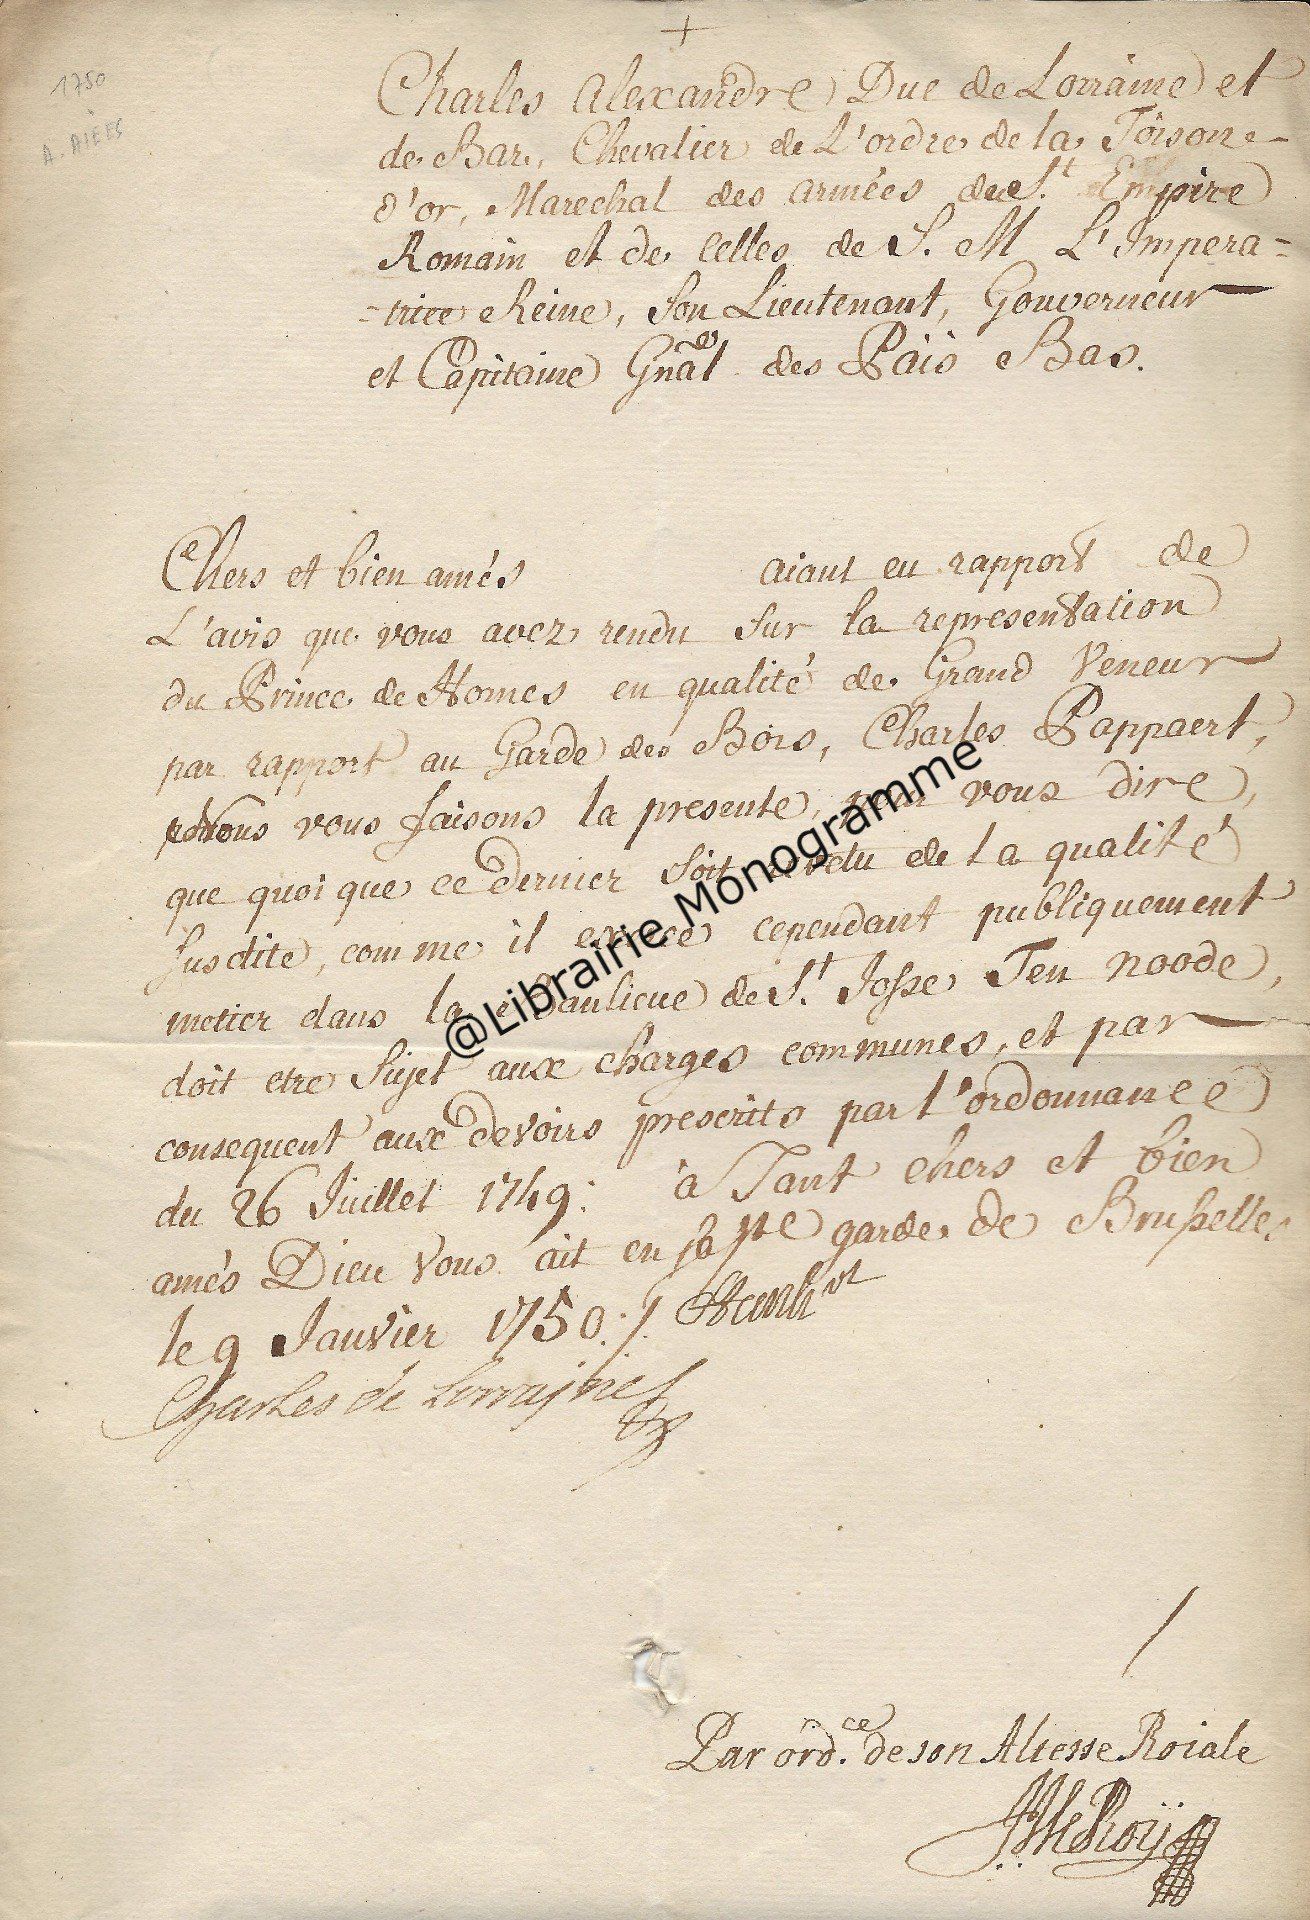 +
1750
A. AIÈES
Charles Alexandre Duc de Lorraine et
de Bar, Chevalier de L'ordre de la Toison
d'or, Marechal des armées du St. Empire
Romain et de Celles de S. M. L'Impera=
=trice Reine, Son Lieutenant, Gouverneur
et Capitaine Gñal des Païs Bas.
Chers et bien amés aiant eu rapport de
L'avis que vous avez rendu Sur la representation
du Prince de Hornes en qualité de Grand Veneur
par rapport au Garde des Bois, Charles Pappaert,
Nous vous faisons la presente, pour vous dire,
que quoi que ce dernier Soit revetu de la qualité
Susdite, comme il exerce cependant publiquement
metier dans la Banlieue de St. Josse Ten noode,
doit etre Sujet aux charges communes, et par
consequent aux devoirs prescrits par l'ordonnance
du 26 Juillet 1749: à Tant chers et bien
amés Dieu Vous ait en sa Ste garde, de Brusselle
le 9 Janvier 1750 ./.
Charles de Lorrayne
Par ord.ce de son Altesse Roiale
@Librairie Monogramme